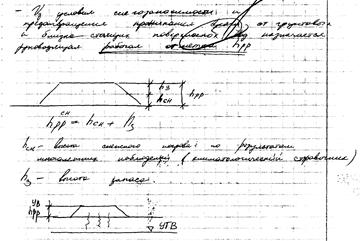 - Из условия снегозаносимости и
предотвращения от грунтовых
и близко стоящих поверхностн. вод назначается
руководящая рабочая отметка hрр
hз
hсн
hрр
hрр^сн = hсн + hз
hсн - высота снежного покрова по результатам
многолетних наблюдений (климатологический справочник)
hз - высота запаса.
hрр
УГВ